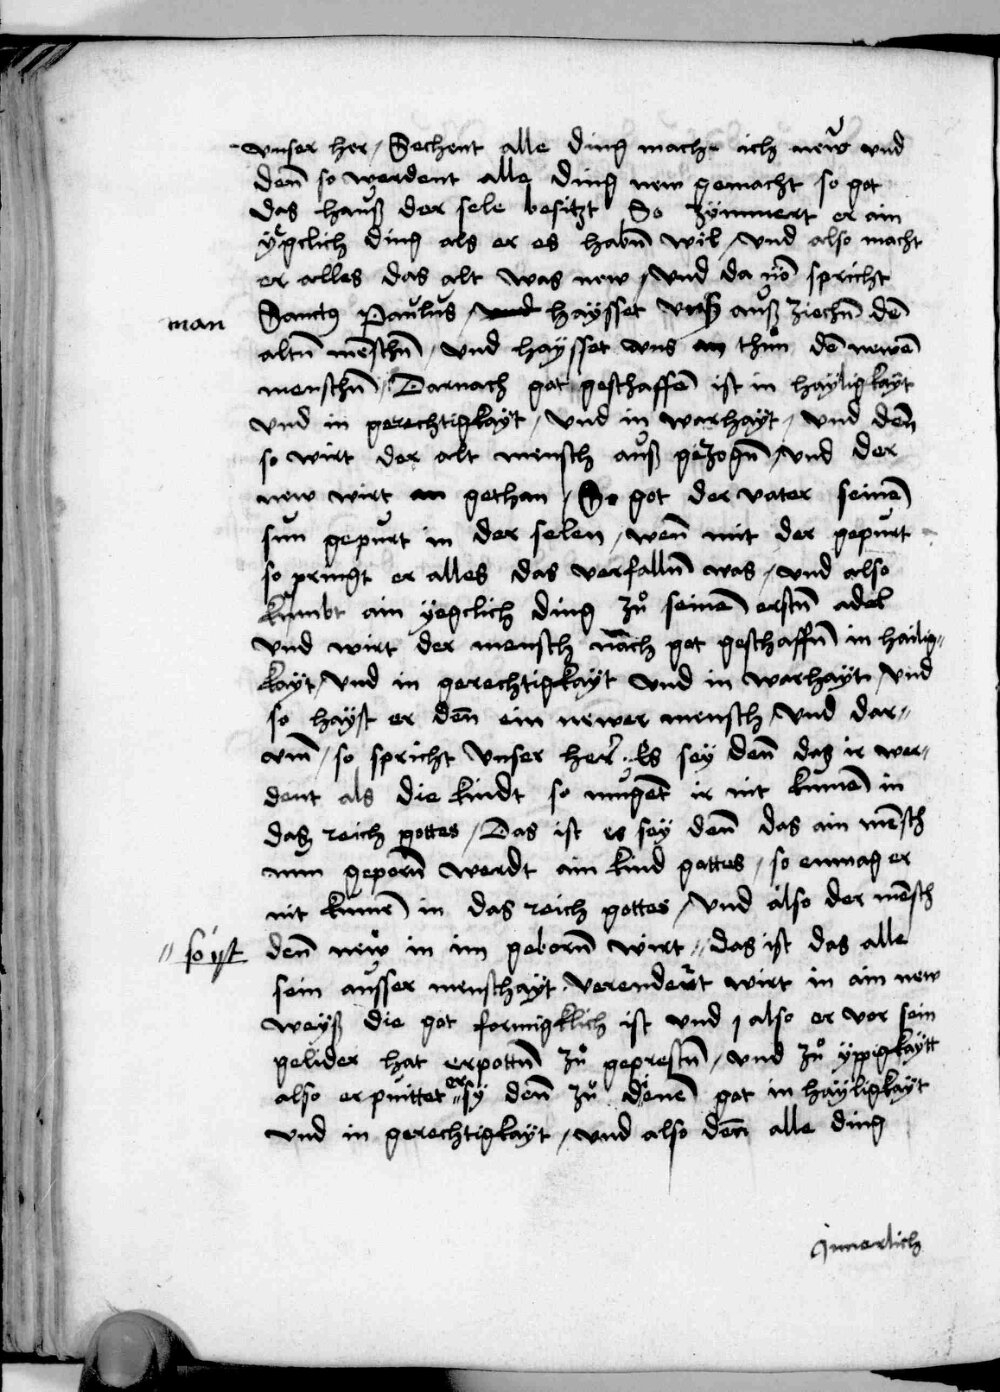 vnser her / Sechent alle ding mach ich new vnd
den̄ so werdent alle ding new gemacht so got
das hauß der sele besitzt So zymmert er ain
ygclich ding als er es habn̄ wil / vnd also macht
er alles das alt was new / vnd da vō spricht
man
Sanctꝰ Paulus / vnd haysset vnß auß ziechn̄ dē
altn̄ mēschn̄ / vnd haysset vns an thůn dē newē
menschn̄ / Darnach got geschaffē ist in hayligkayt
vnd in gerechtigkayt / vnd in warhayt / vnd den̄
so wirt der alt mensch auß gezogn̄ / vnd der
new wirt an gethan / So got der vater seinē
sun gepurt in der selen / wen̄ mit der gepurt
so pringt er alles das verfalln̄ was / vnd also
kumbt ain yegclich ding zů seinē erstn̄ adel
vnd wirt der mensch nach got geschaffn̄ in hailig„
kayt / vnd in gerechtigkayt vnd in warhayt / vnd
so hayst er den̄ ein newer mensch / vnd dar„
vm̄ / so spricht vnser her / Es sey den̄ das ir wer„
dent als die kindt so mugēt ir nit kumē in
daß reich gottes / Das ist es sey den̄ das ain mēsch
nun geporn̄ werdt ain kind gottes / so enmag er
nit kumē in das reich gottes / vnd also der mēsch
„ so yst
den̄ new in im geborn̄ wirt „ das ist das alle
sein ausser menschayt verendert wirt in ain new
weyß die got formigklich ist vnd / also er vor sein
gelider hat erpottn̄ zů geprestn̄ / vnd zů yppigkaytt
also erpuittet er „ sy den̄ zů dienē got in hayligkayt
vnd in gerechtigkayt / vnd also den̄ alle ding
Jnnerlich